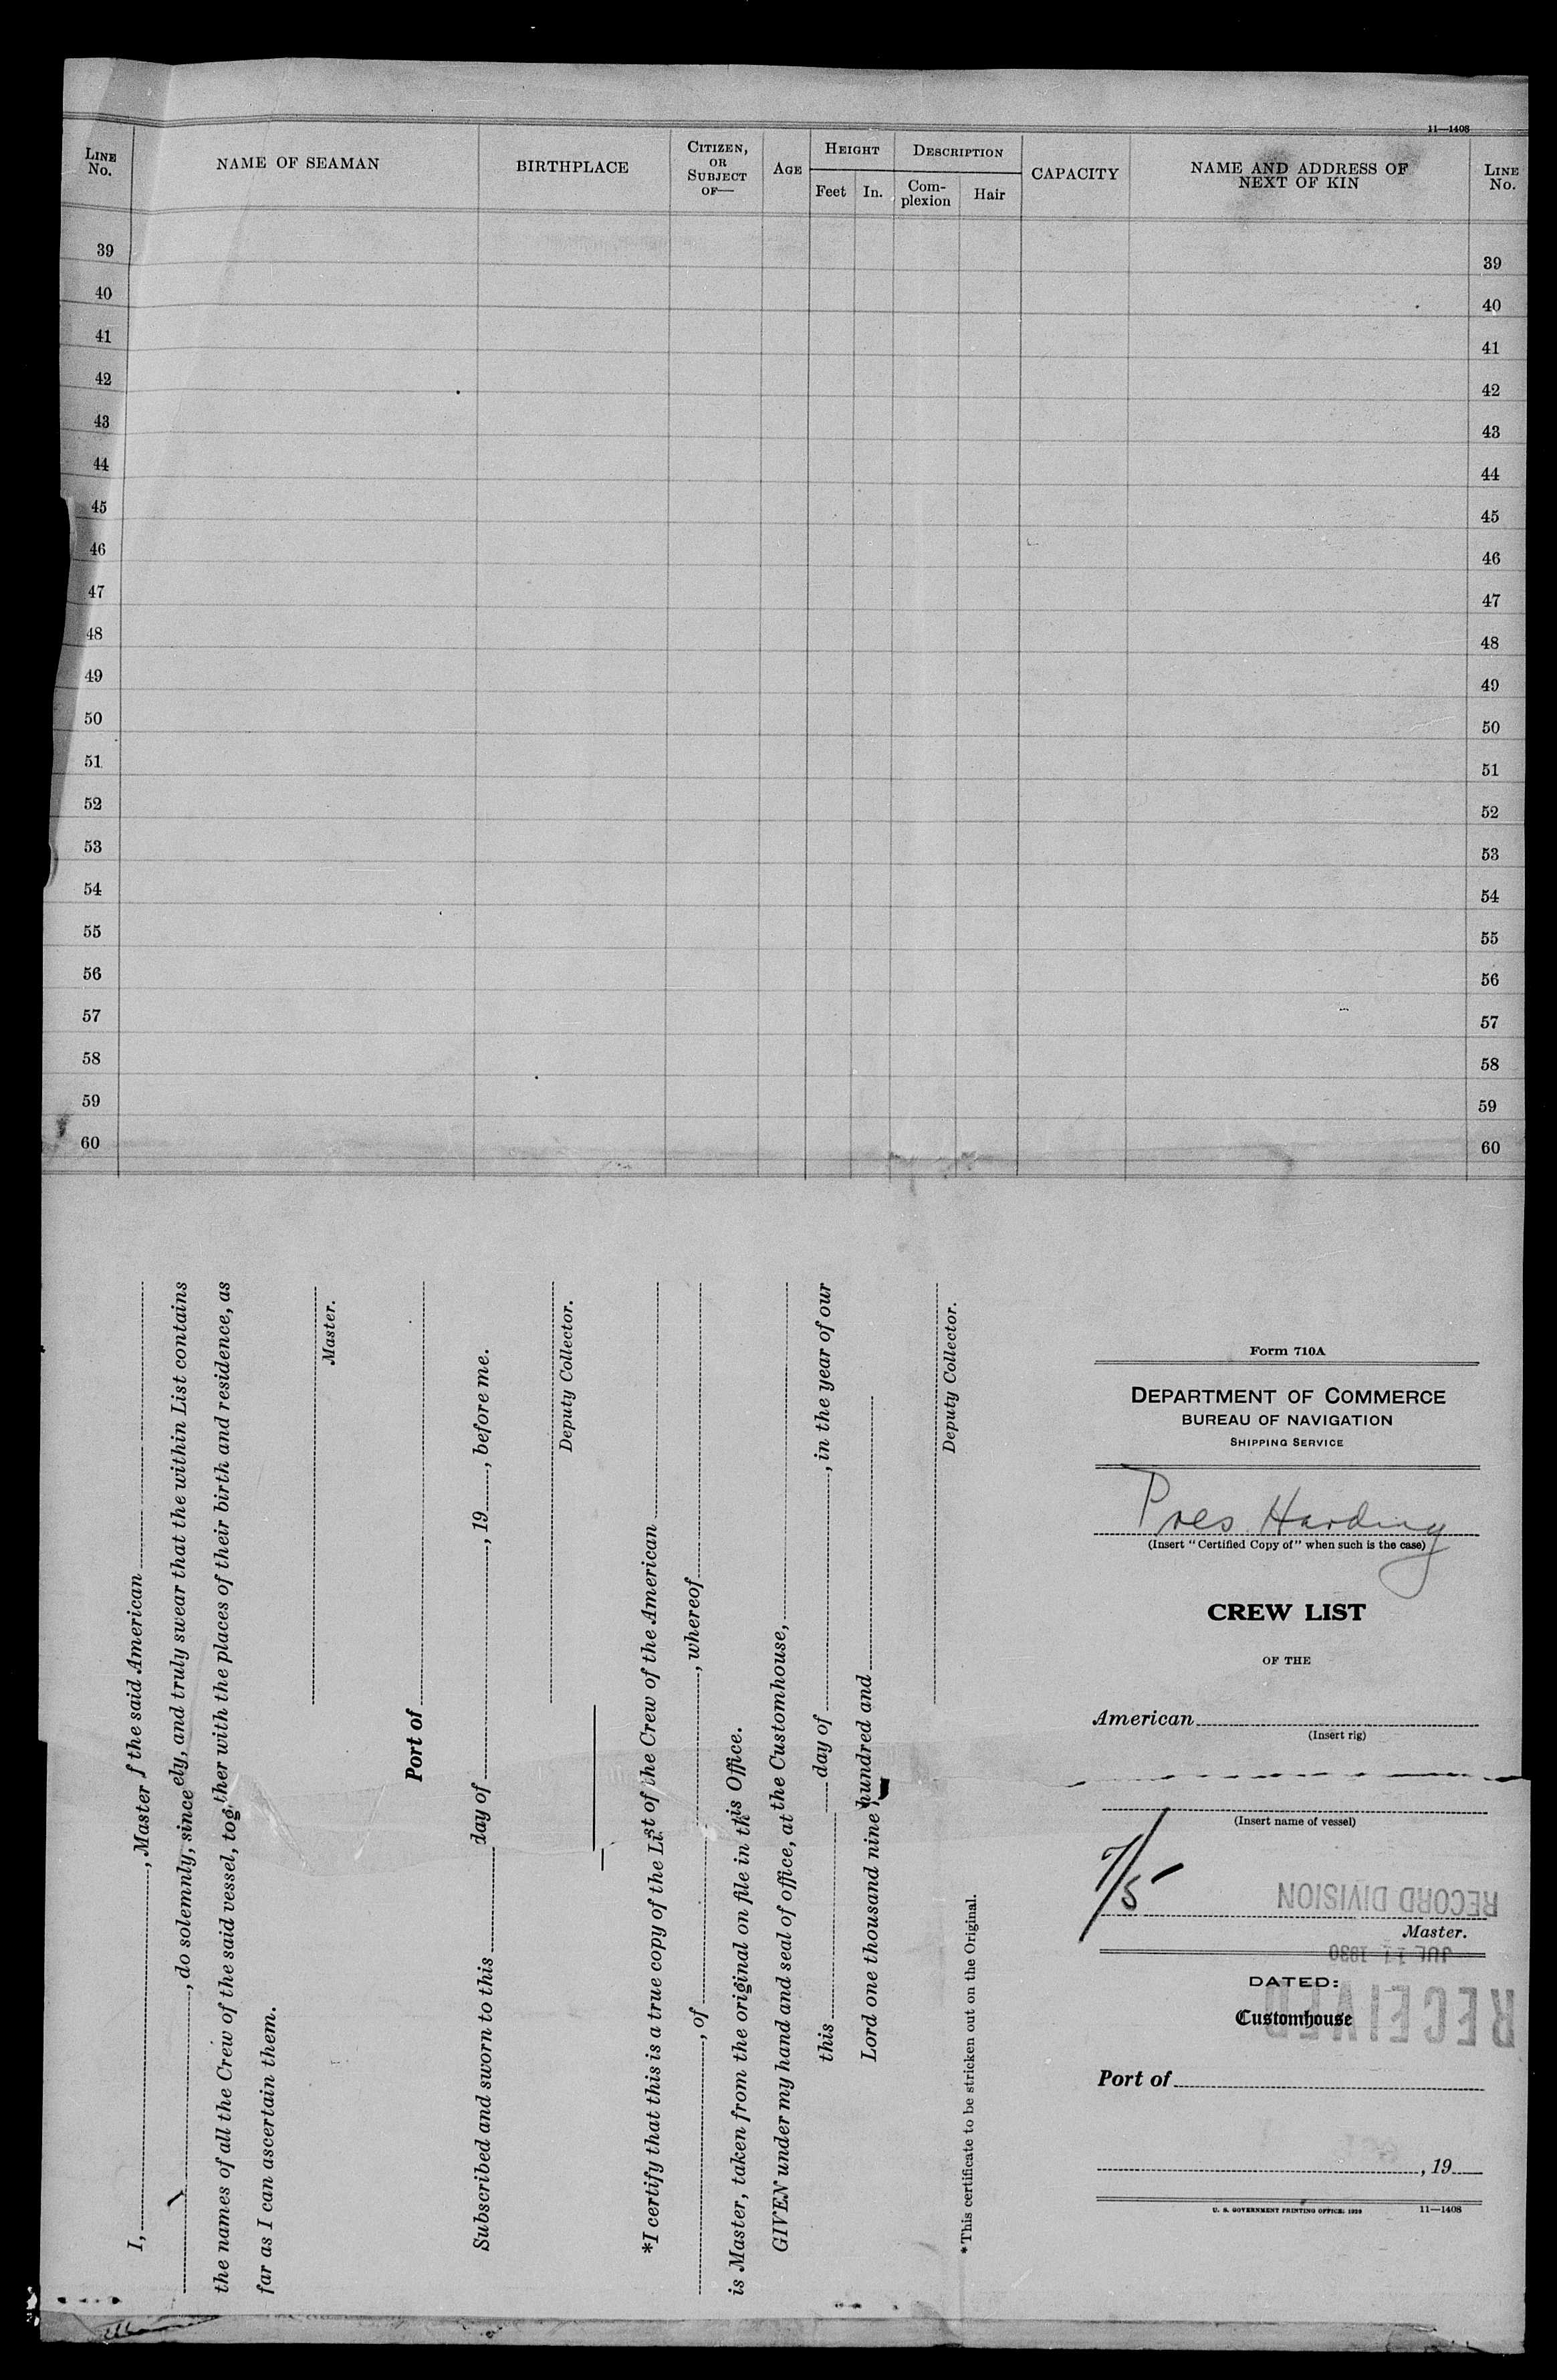 11—1408
LINE No. NAME OF SEAMAN BIRTHPLACE CITIZEN, OR SUBJECT OF— AGE HEIGHT Feet In. DESCRIPTION Complexion Hair CAPACITY NAME AND ADDRESS OF NEXT OF KIN LINE No.
39 39
40 40
41 41
42 42
43 43
44 44
45 45
46 46
47 47
48 48
49 49
50 50
51 51
52 52
53 53
54 54
55 55
56 56
57 57
58 58
59 59
60 60
I, , Master f the said American
, do solemnly, since ely, and truly swear that the within List contains
the names of all the Crew of the said vessel, tog ther with the places of their birth and residence, as
far as I can ascertain them.
Master.
Port of
Subscribed and sworn to this day of , 19 , before me.
Deputy Collector.
*I certify that this is a true copy of the Li st of the Crew of the American
, of , whereof
is Master, taken from the original on file in th is Office.
GIVEN under my hand and seal of office, at the Customhouse,
this day of , in the year of our
Lord one thousand nine hundred and
Deputy Collector.
*This certificate to be stricken out on the Original.
Form 710A
DEPARTMENT OF COMMERCE
BUREAU OF NAVIGATION
SHIPPING SERVICE
Pres Harding
(Insert "Certified Copy of" when such is the case)
CREW LIST
OF THE
American
(Insert rig)
(Insert name of vessel)
7/5
RECORD DIVISION
Master.
JUL 11 1930
DATED:
RECEIVED
Customhouse
Port of
, 19
U. S. GOVERNMENT PRINTING OFFICE: 1928 11—1408